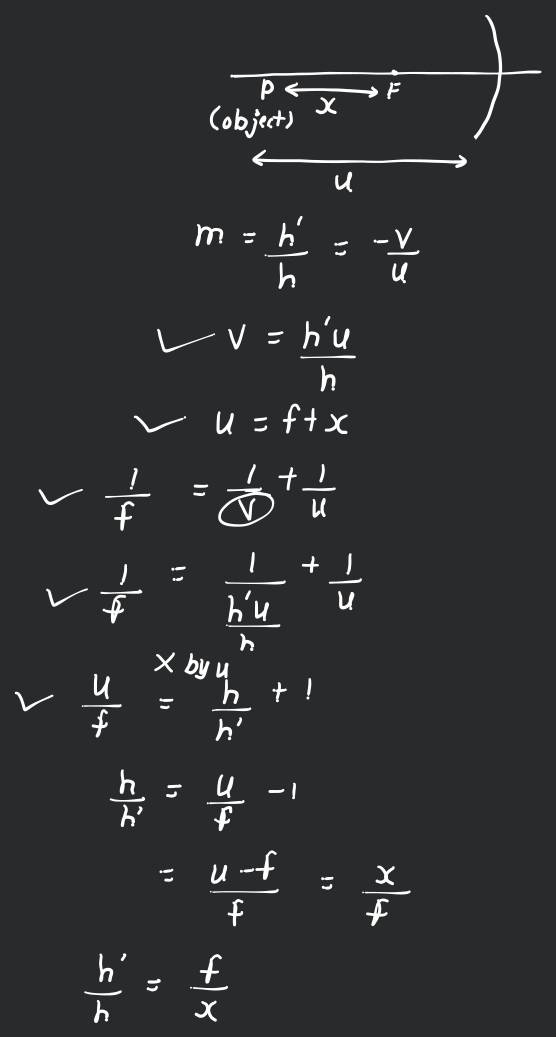 P F
x
(object)
u
m = h'/h = -v/u
✓ v = h'u/h
✓ u = f+x
✓ 1/f = 1/v + 1/u
✓ 1/f = 1/(h'u/h) + 1/u
× by u
✓ u/f = h/h' + 1
h/h' = u/f -1
= u-f/f = x/f
h'/h = f/x